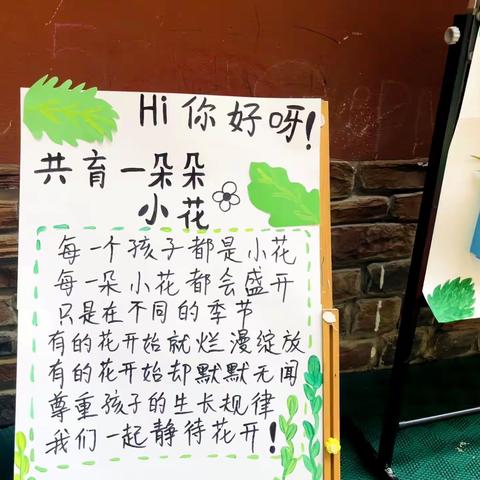 Hi 你好呀!
共育一朵朵
小花
每一个孩子都是小花
每一朵小花都会盛开
只是在不同的季节
有的花开始就烂漫绽放
有的花开始却默默无闻
尊重孩子的生长规律
我们一起静待花开!